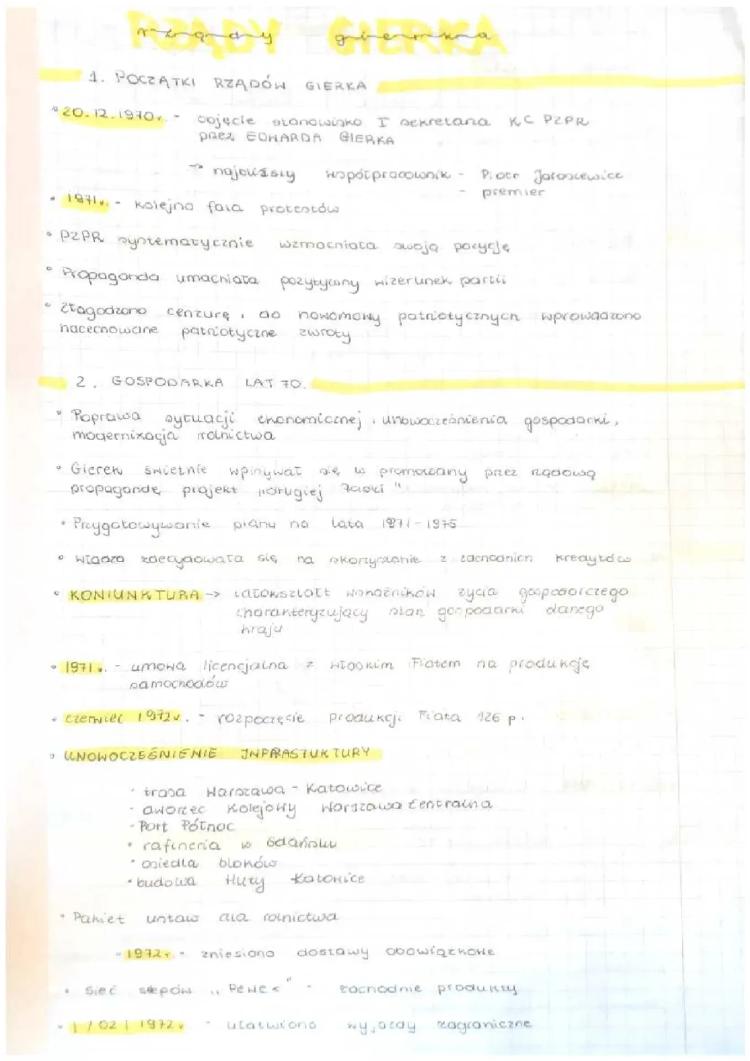 RZĄDY GIERKA
rządy gierka
1. POCZĄTKI RZĄDÓW GIERKA
• 20.12.1970r. - objęcie stanowisko I sekretarza KC PZPR
przez EDWARDA GIERKA
→ najbliższy współpracownik - Piotr Jaroszewicz
- premier
• 1971r. - kolejna fala protestów
• PZPR systematycznie wzmacniała swoją pozycję
• Propaganda umacniała pozytywny wizerunek partii
• Złagodzono cenzurę, do nowomowy patriotycznych wprowadzono
nacechowane patriotyczne zwroty
2. GOSPODARKA LAT 70.
• Poprawa sytuacji ekonomicznej, unowocześnienia gospodarki,
modernizacja rolnictwa
• Gierek świetnie wpisywał się w promowany przez rządową
propagandę projekt "drugiej Polski"
• Przygotowywanie planu na lata 1971-1975
• władza zdecydowała się na skorzystanie z zachodnich kredytów
• KONIUNKTURA → całokształt wskaźników życia gospodarczego
charakteryzujący stan gospodarki danego
kraju
• 1971r. - umowa licencjalna z włoskim Fiatem na produkcję
samochodów
• czerwiec 1972r. - rozpoczęcie produkcji Fiata 126 p.
• UNOWOCZEŚNIENIE INFRASTUKTURY
• trasa Warszawa - Katowice
• dworzec kolejowy Warszawa Centralna
• Port Północ
• rafineria w Gdańsku
• osiedla bloków
• budowa Huty Katowice
• Pakiet ustaw dla rolnictwa
- 1972r. - zniesiono dostawy obowiązkowe
• sieć sklepów "Pewex" - zachodnie produkty
• 1/02/1972r - ułatwiono wyjazdy zagraniczne